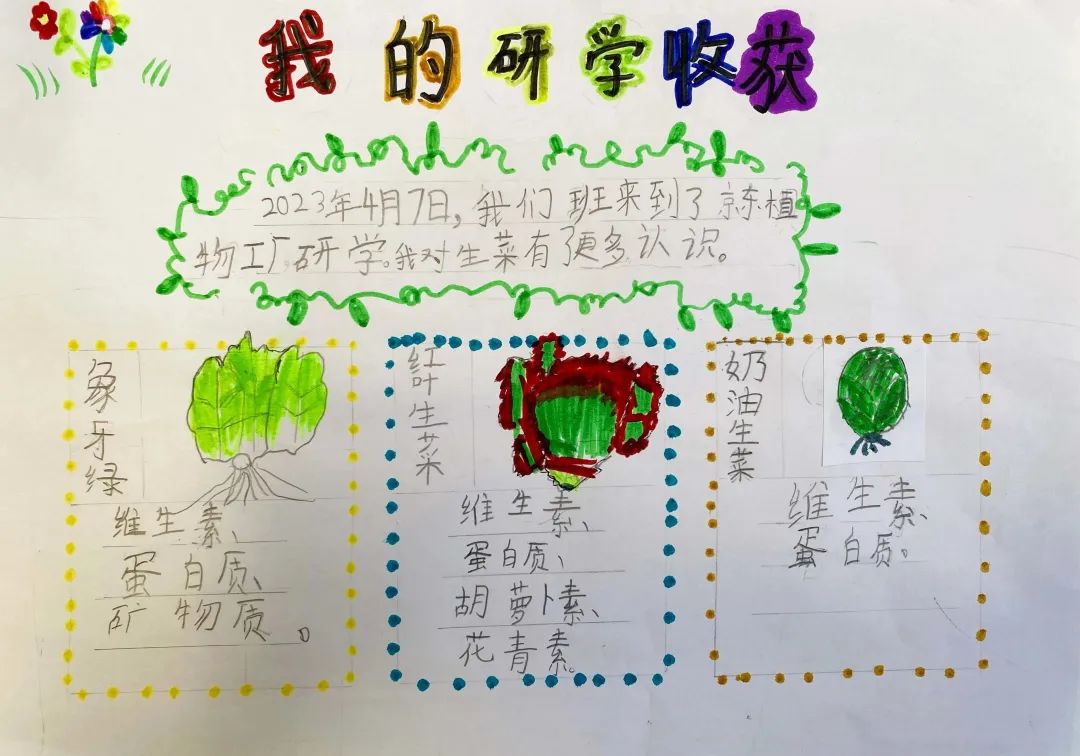 我的研学收获
2023年4月7日，我们班来到了京东植
物工厂研学。我对生菜有了更多认识。
象牙绿
维生素、
蛋白质、
矿物质。
红叶生菜
维生素、
蛋白质、
胡萝卜素、
花青素。
奶油生菜
维生素、
蛋白质。